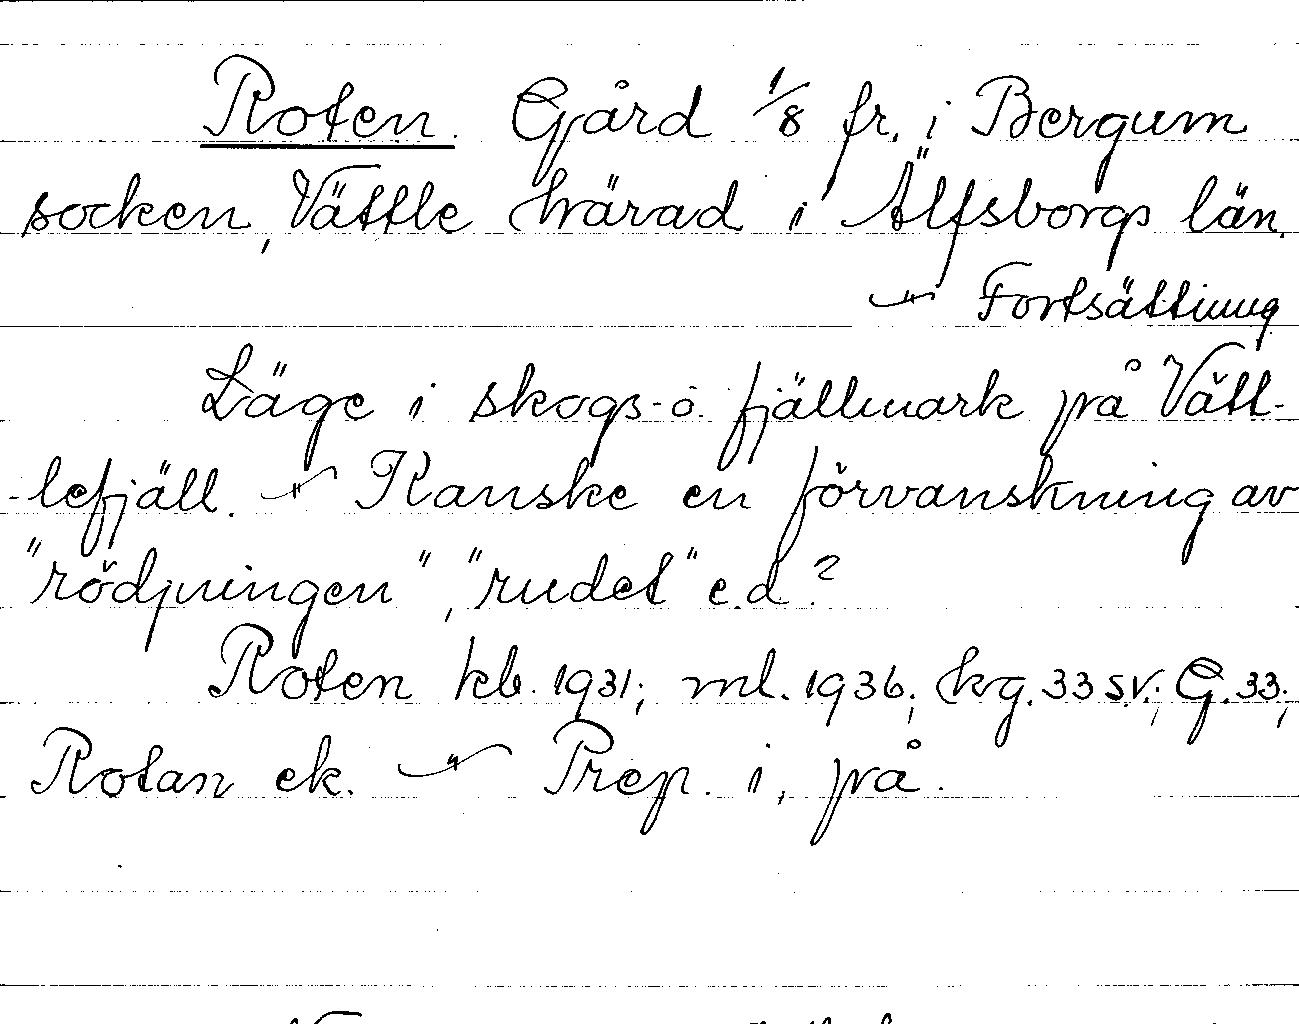 Roten. Gård 1/8 fr. i Bergum
socken, Vättle härad i Älfsborgs län.
–"– Fortsättning
Läge i skogs- o. fjällmark på Vätt-
-lefjäll. –"– Kanske en förvanskning av
"rödjningen", "rudet" e.d.?
Roten kb. 1931; ml. 1936; hrg. 33 SV.; G. 33;
Rotan ek. –"– Prep. i, på.